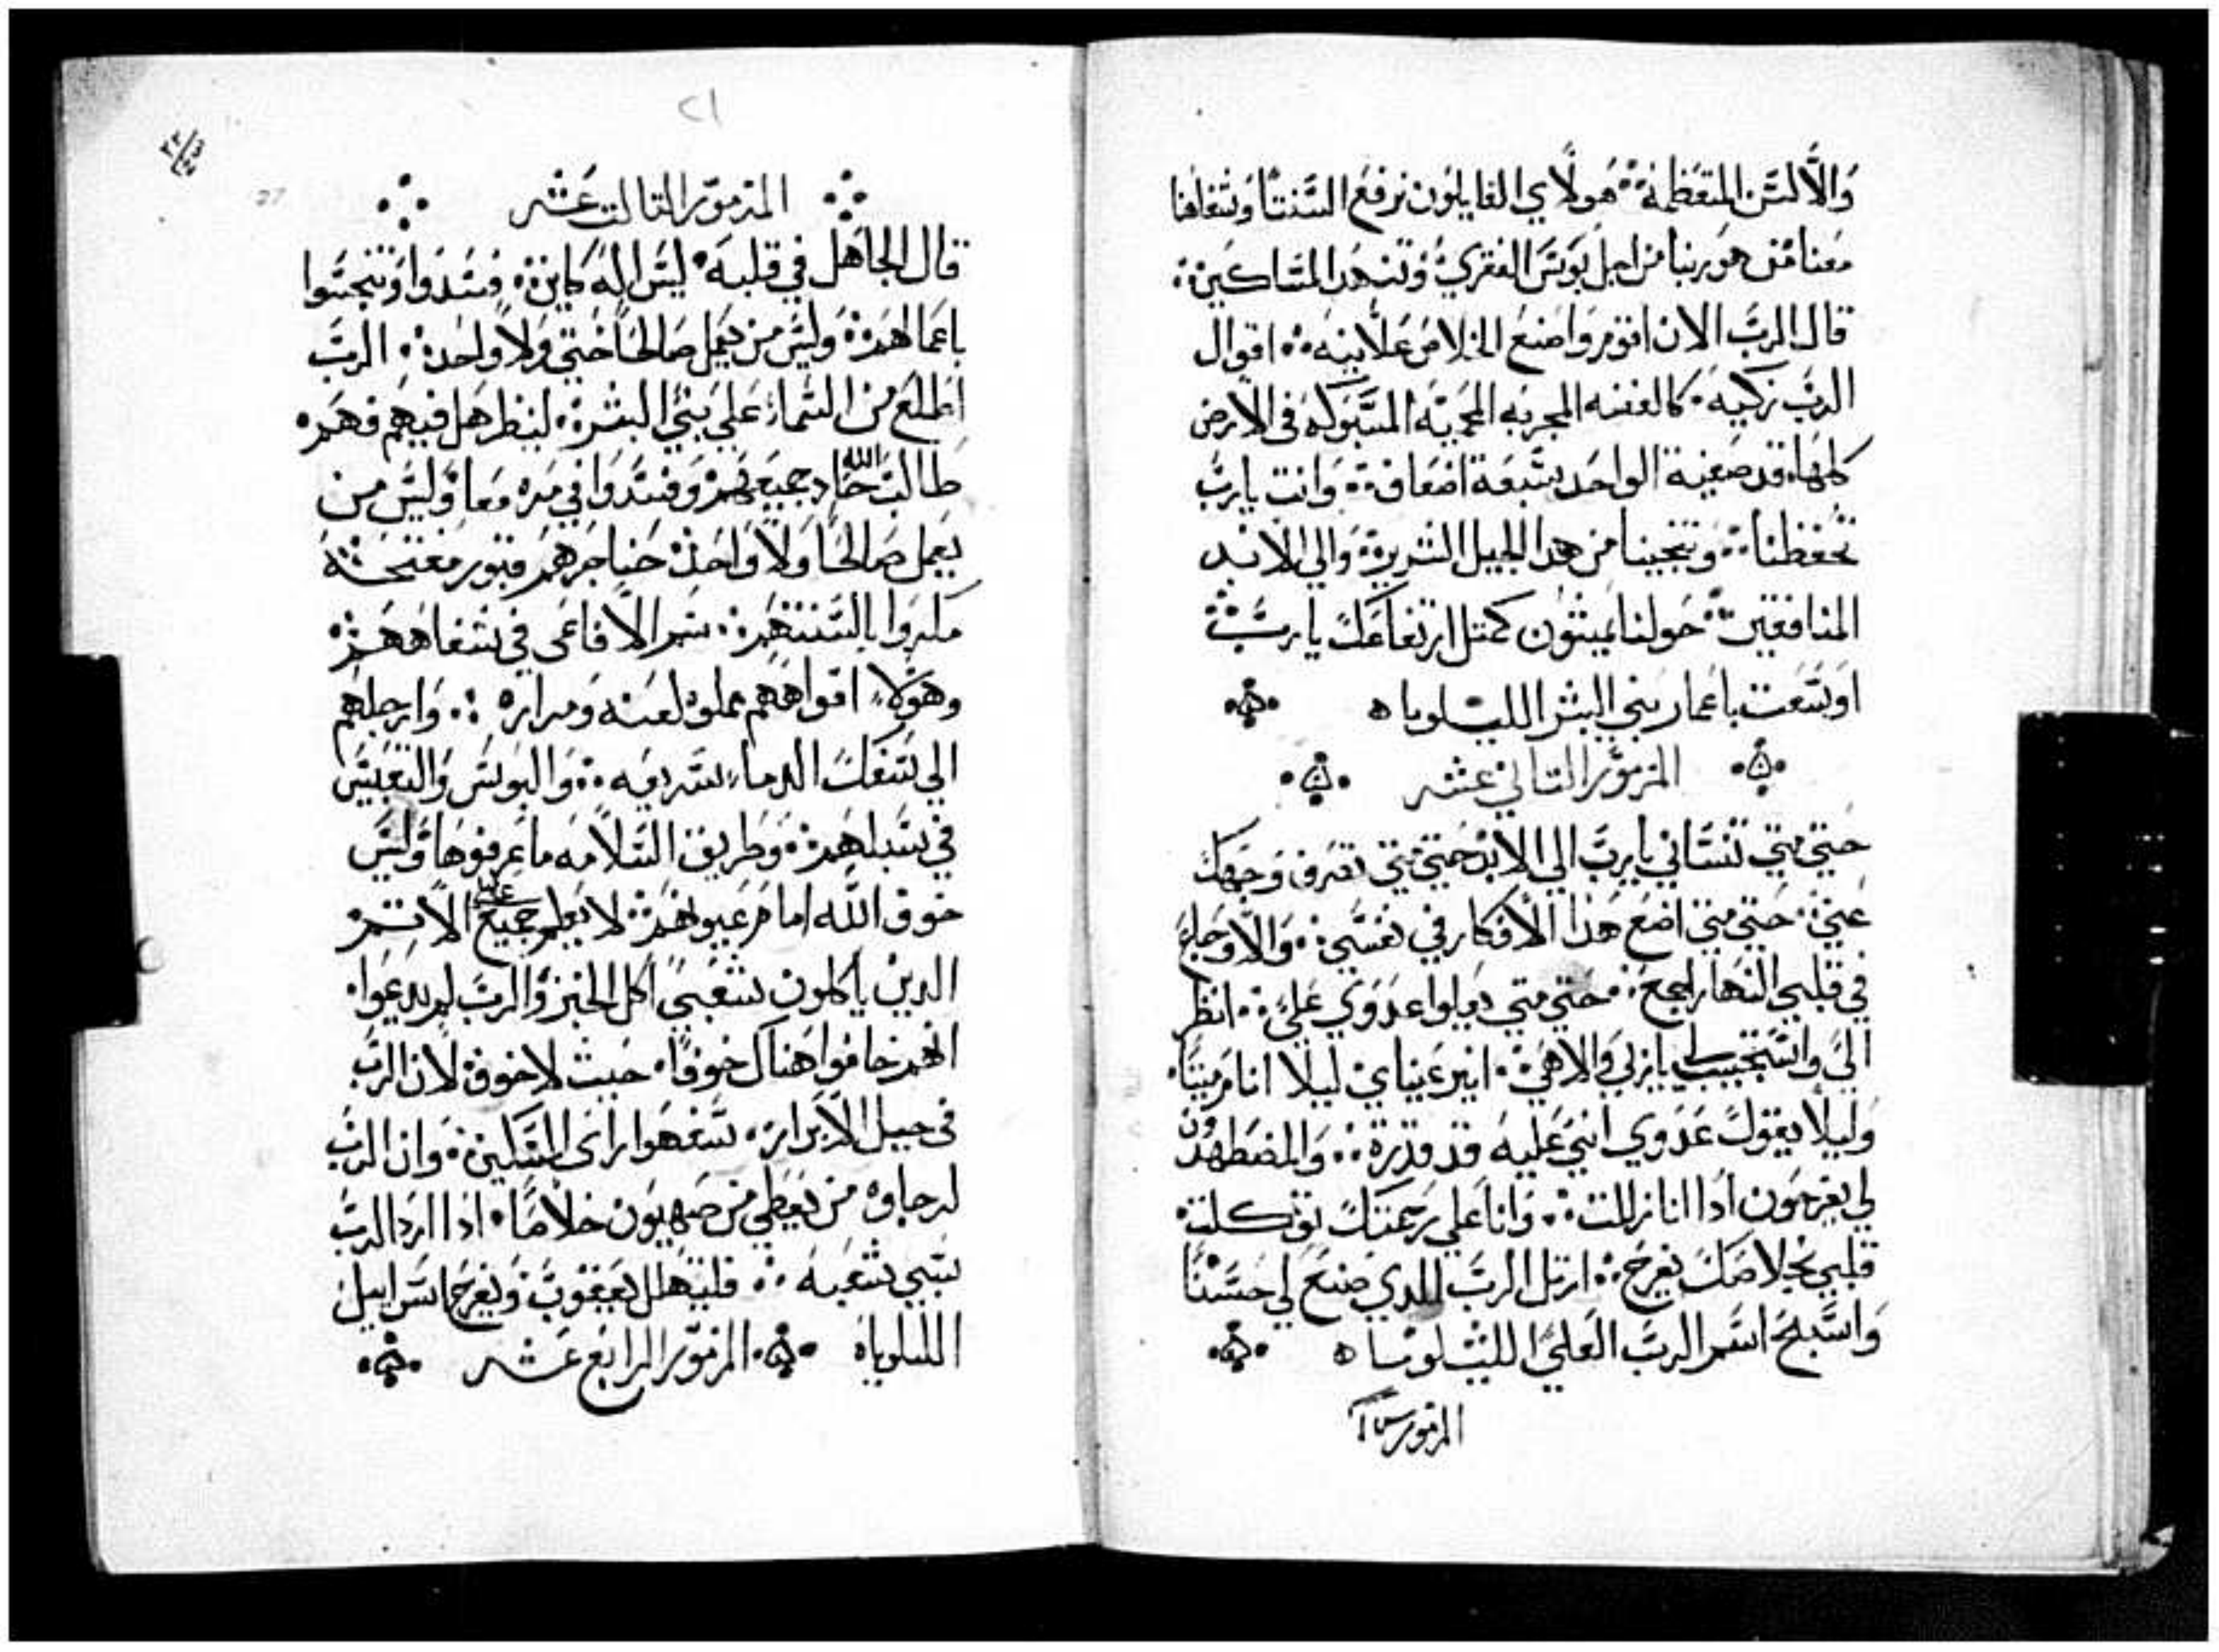 والالسن المتعظمة هولاي القايلون نرفع السنتنا وشفاهنا
معنا من هو ربنا من اجل بوس الفقري وتنهد المساكين
قال الرب الان اقوم واصنع الخلاص علانيه اقوال
الرب زكيه كالفضه المجربه المحميه المسبوكه في الارض
كلها قد صفية الواحد سبعة اضعاف وانت يارب
تحفظنا وتنجينا من هدا الجيل الشرير والي الابد
المنافقين حولنا يمشون كمتل ارتفاعك يارب
اوسعت باعمار بني البشر الليلوياه
المزمور التاني عشر
حتي متي تنساني يارب الي الابد حتي متي تصرف وجهك
عني حتي متي اضع هذا الافكار في نفسي والاوجاع
في قلبي النهار اجمع حتي متي يعلوا عدوي علي انظر
الي واستجيب لي ياربي والاهي انير عيناي ليلا انام ميتا
وليلا يقول عدوي انني عليه قد قدرة والمضطهدون
لي يفرحون ادا انا زللت وانا علي رحمتك توكلت
قلبي بخلاصك يفرح ارتل الرب اللدي صنع لي حسنا
واسبح اسم الرب العلي الليلوياه
المزمور
٢١
المزمور التالت عشر
قال الجاهل في قلبه ليس اله كاين فسدوا وتنجسوا
باعمالهم وليس من يعمل صالحا حتي ولا واحد الرب
اطلع من السماء علي بني البشر لينظر هل فيهم فهم
طالب الله حاد جميعهم وفسدوا في مره معا وليس من
يعمل صالحا ولا واحد حناجرهم قبور مفتحة
مكروا بالسنتهم سم الافاعي في شفاههم
وهولاء افواههم مملوه لعنه ومراره وارجلهم
الي سفك الدماء سريعه والبوس والتعيس
في سبلهم وطريق السلامه ما عرفوها وليس
خوف الله امام عيونهم لا يعلم جميع عاملي الاتم
الدين ياكلون شعبي اكل الخبز والرب لم يدعوا
انهم خافوا هناك خوفا حيث لا خوف لان الرب
في جيل الابرار سفهوا راي المسكين وان الرب
لرجاوه من يعطي من صهيون خلاصا ادا ارد الرب
سبي شعبه فليتهلل يعقوب ويفرح اسراييل
الليلوياه المزمور الرابع عشر